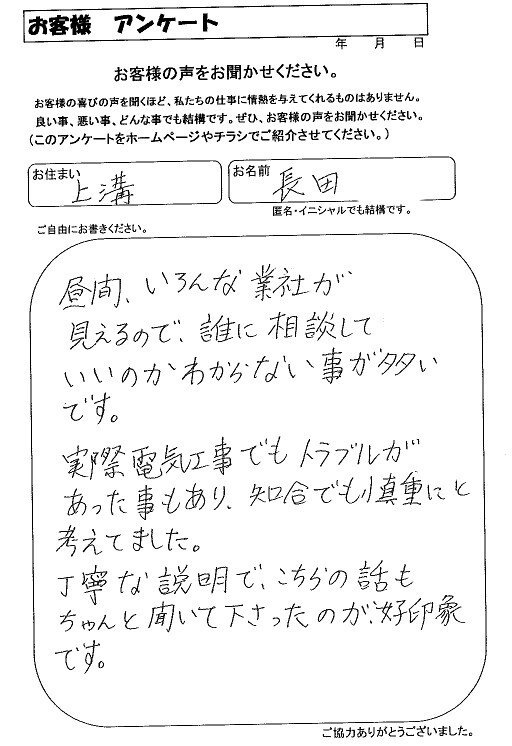 お客様 アンケート
年 月 日
お客様の声をお聞かせください。
お客様の喜びの声を聞くほど、私たちの仕事に情熱を与えてくれるものはありません。
良い事、悪い事、どんな事でも結構です。ぜひ、お客様の声をお聞かせください。
(このアンケートをホームページやチラシでご紹介させてください。)
お住まい 上溝
お名前 長田
匿名・イニシャルでも結構です。
ご自由にお書きください。
昼間、いろんな業社が
見えるので、誰に相談して
いいのかわからない事が多い
です。
実際電気工事でもトラブルが
あった事もあり、知合でも慎重にと
考えてました。
丁寧な説明で、こちらの話も
ちゃんと聞いて下さったのが、好印象
です。
ご協力ありがとうございました。